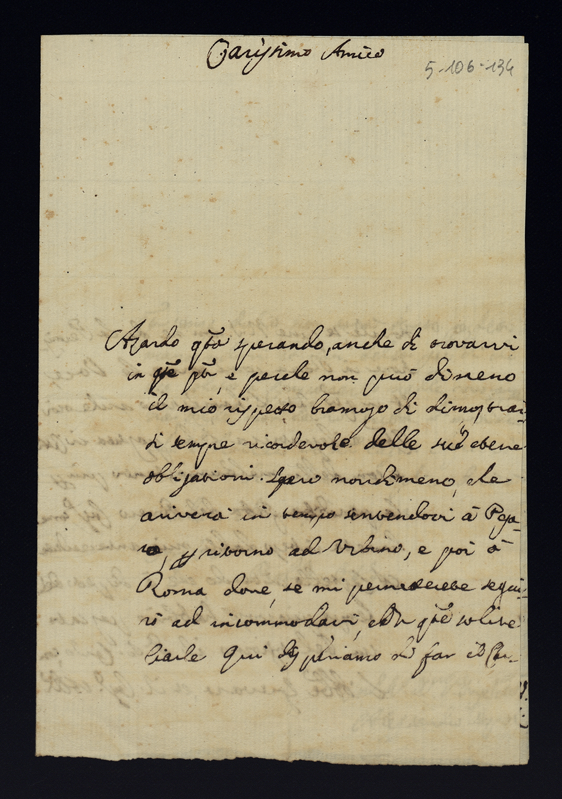 Carissimo Amico
5-106-134
Azardo qta sperando, anche di trovarvi
in qte pti, e perche non può di meno
il mio rispetto bramoso di dimostrar-
si sempre ricordevole delle sue
obligationi. Spero nondimeno, che
arriverà in tempo sentendovi à
ritorno ad Urbino, e poi à
Roma dove, se mi permeterete segui-
rò ad incommodarvi, con qte solite
ciarle Qui di far il